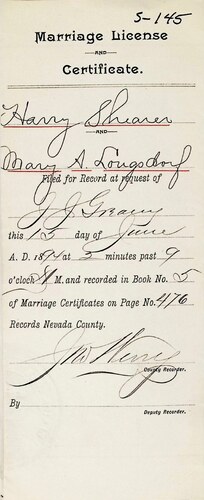 S-145
Marriage License
AND
Certificate.
Harry Shearer
AND
Mary A. Longsdorf
Filed for Record at request of
J. J. Greany
this 15 day of June
A. D. 1897 at 5 minutes past 9
o'clock A M. and recorded in Book No. 5
of Marriage Certificates on Page No. 476
Records Nevada County.
County Recorder.
By
Deputy Recorder.